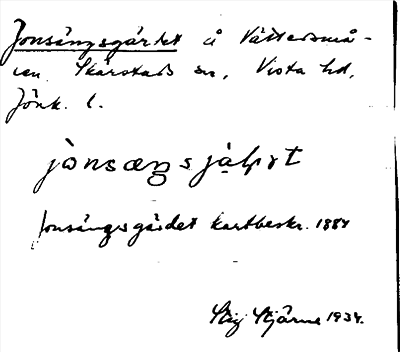 Jonsängsgärtet å Vättersmå-
len Skärstads sn, Vista hd,
Jönk. l.
jònsæŋsjàḷɽt
Jonsängsgärdet kartbeskr. 1884
Stig Stjärne 1934.